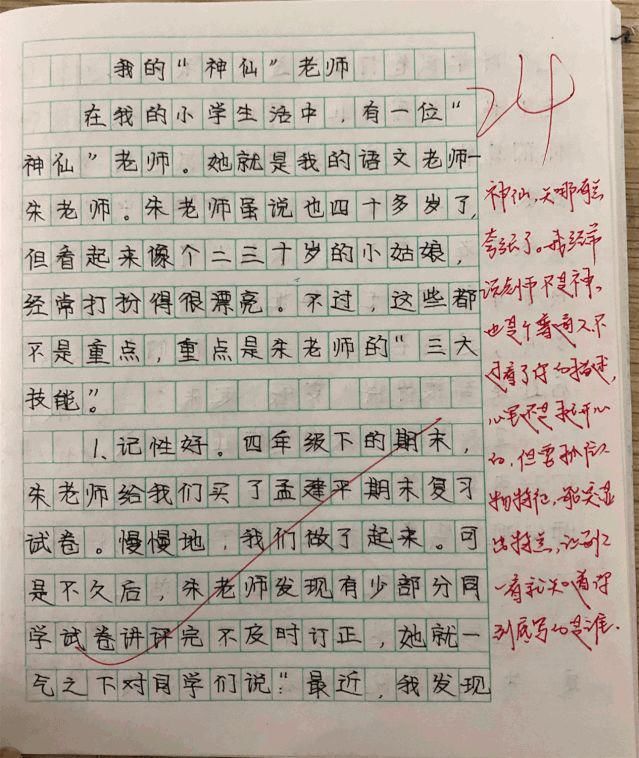 我的“神仙”老师
24
在我的小学生活中，有一位“
神仙”老师。她就是我的语文老师—
朱老师。朱老师虽说也四十多岁了，
但看起来像个二三十岁的小姑娘，
经常打扮得很漂亮。不过，这些都
不是重点，重点是朱老师的“三大
技能”。
1、记性好。四年级下的期末，
朱老师给我们买了孟建平期末复习
试卷。慢慢地，我们做了起来。可
是不久后，朱老师发现有少部分同
学试卷讲评完不及时订正，她就一
气之下对同学们说：“最近，我发现
神仙，
夸张了。我经常
说老师不是神，
也是个普通人不
过看了你的描述，
心里还是挺开心
的，但要抓住人
物特征，能突显
出特点，让别人
一看就知道你
到底写的是谁.